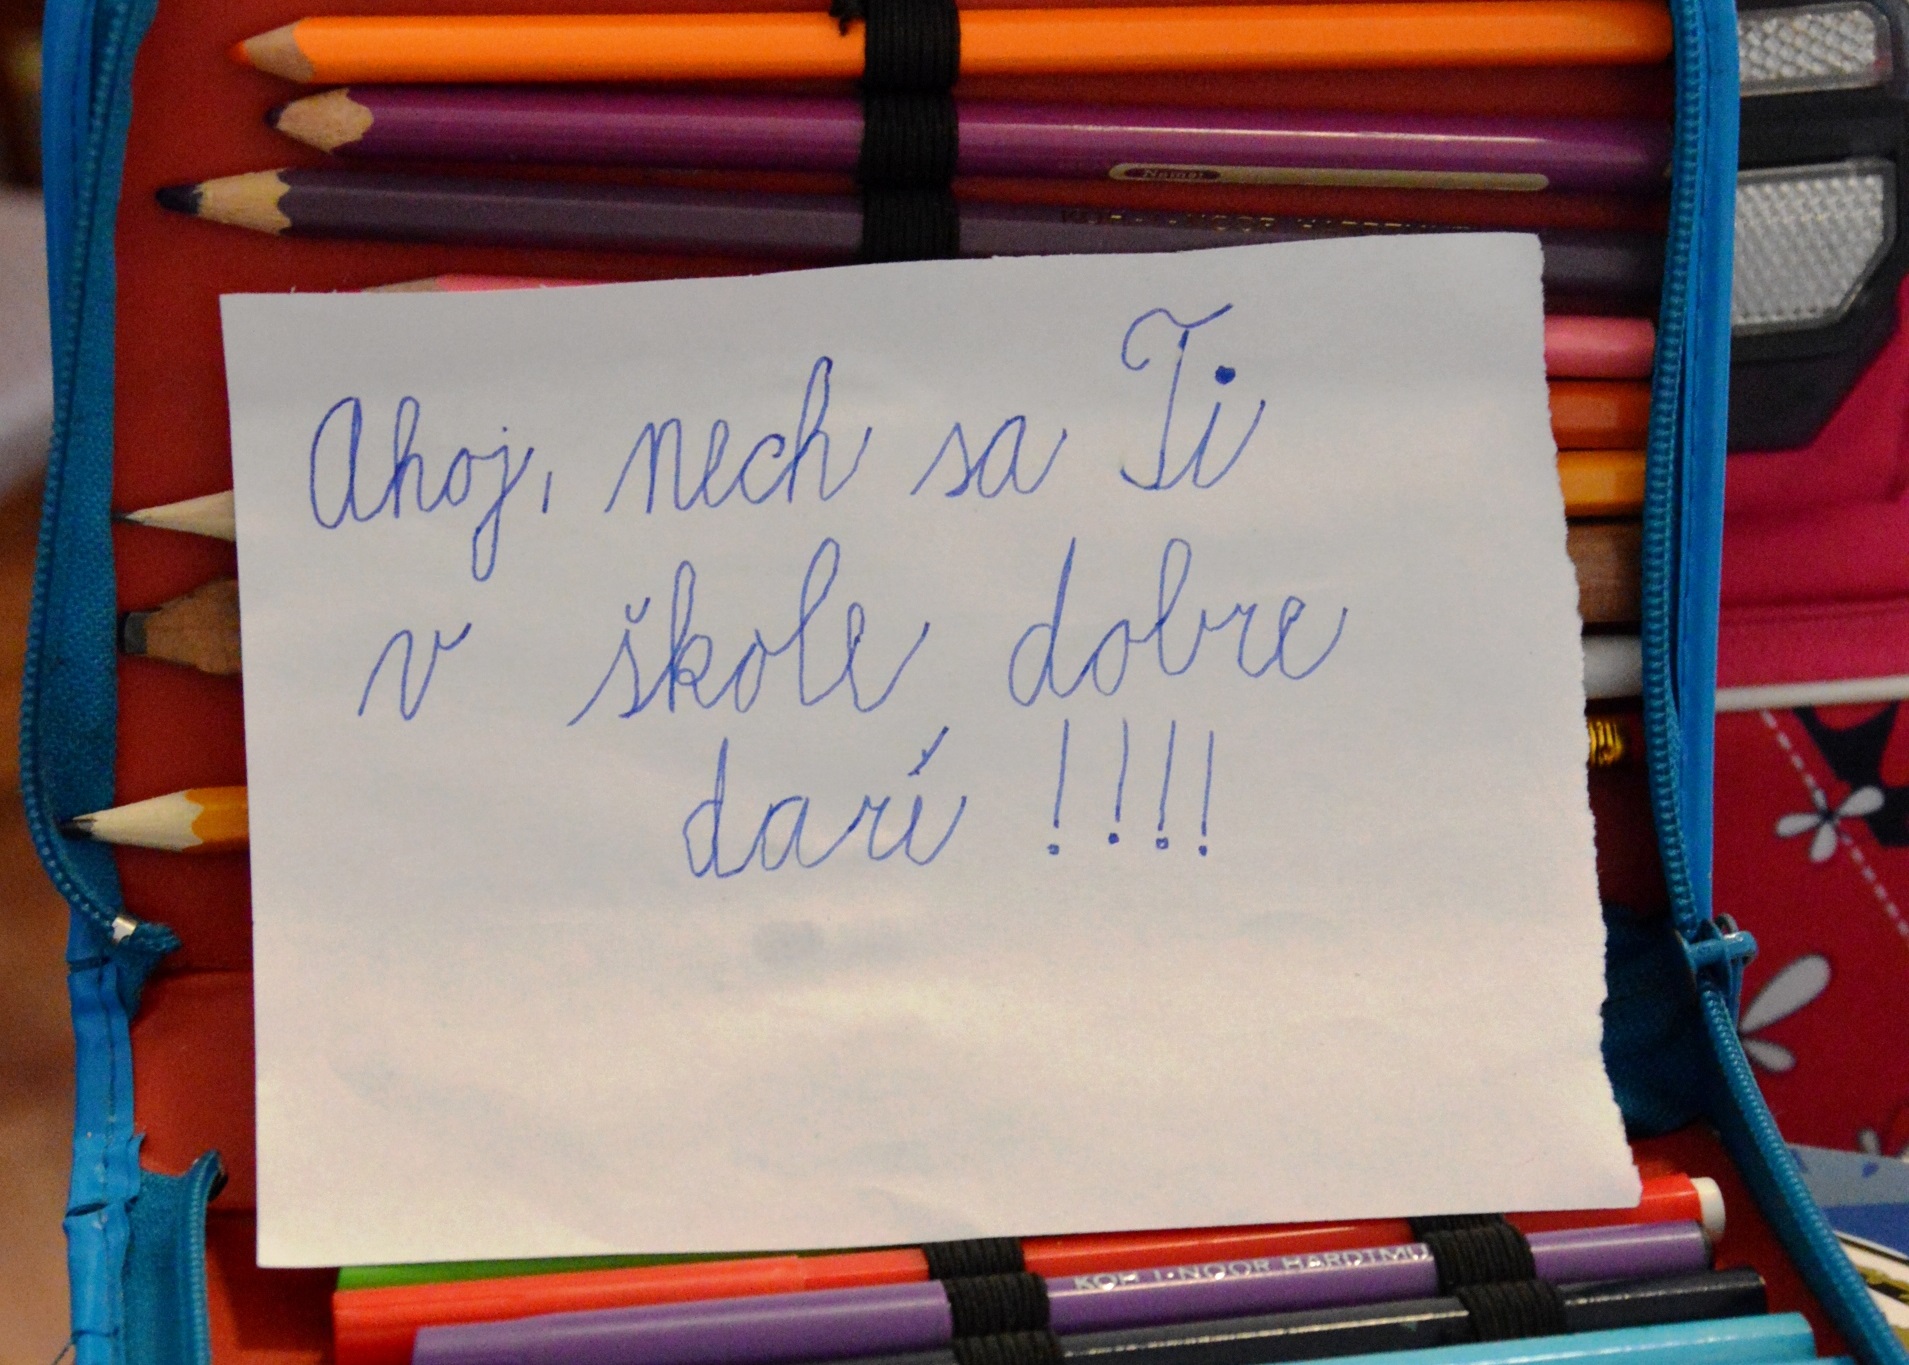 Name:
Ahoj, nech sa Ti
v škole dobre
darí !!!!
KOH-I-NOOR HARDTMU